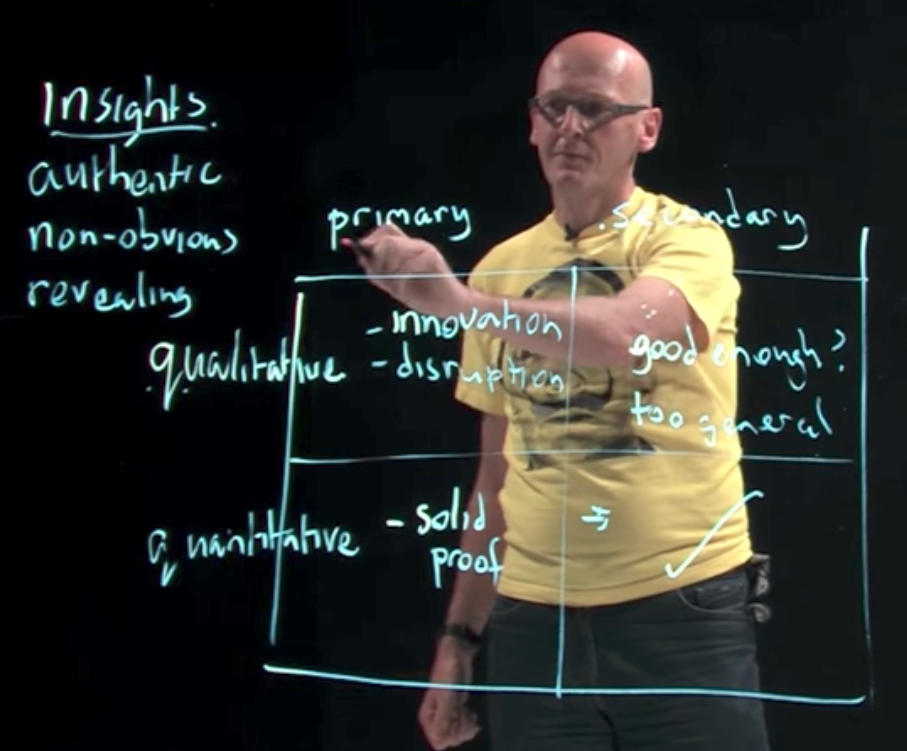 Insights.
authentic
non-obvious
revealing
primary
secondary
qualitative
- innovation
- disruption
good enough?
too general
quantitative
- solid
proof